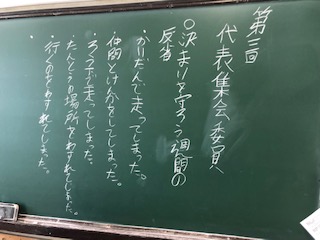 第三回
代表集会委員へ
○決まりを守ろう週間の
反省
・かいだんで走ってしまった。
・仲間とけんかをしてしまった。
・ろう下で走ってしまった。
・たんとうの場所をわすれてしまった。
・行くのをわすれてしまった。